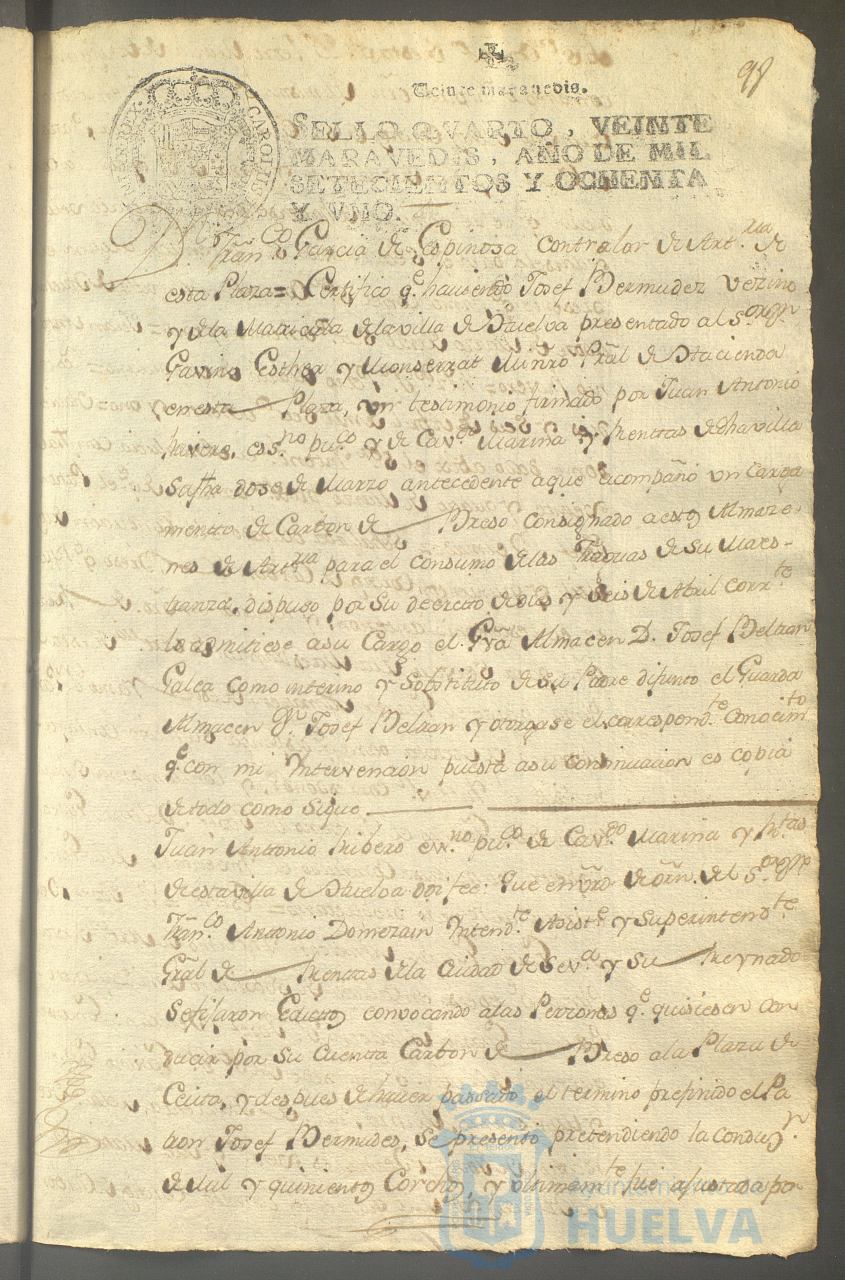 98
Veinte maravedis.
SELLO QVARTO, VEINTE
MARAVEDIS, AÑO DE MIL
SETECIENTOS Y OCHENTA
Y VNO.
CAROLUS
Dn. Franco. Garcia de Espinosa Contralor de Artria. de
esta Plaza = Certifico qe. haviendo Josef Bermudez Vezino
y de la Matricula de la villa de Huelva presentado al Sor. Dn.
Gavino Esther y Monserrat Minro. Pral. de Hacienda
en esta Plaza, un testimonio firmado por Juan Antonio
Rivero, essno. puco. y de Cavdo. Marina y Rentas de dha villa
su fha dose de Marzo antecedente a que acompañó un Carga
mento de Carbon de Breso consignado a estos Almaze-
nes de Artria para el consumo de las Fraguas de su Maes-
tranza, dispuso por su decreto de dies y seis de Abril corrte
lo admitiese a su Cargo el Gda Almacen D. Josef Beltran
Galea como interino y sobstituto de su Padre difunto el Guarda
Almacen Dn. Josef Beltran y otorgase el correspondte. conocimto
qe. con mi Intervencion puesta a su continuacion es copia
de todo como sigue
Juan Antonio Ribero esno. puco. de Cavdo Marina y Rtas
de esta villa de Huelva doi fee: Que en vro. de orn. del Sor. Dn.
Franco. Antonio Domezain Intendte. Asiste. y Superintendte.
Gral de Rentas de la Ciudad de Seva. y su Reynado
se fijaron Edictos convocando a las Perzonas qe. quisiesen con
ducir por su Cuenta Carbon de Breso a la Plaza de
Ceuta, y despues de haver passado el termino prefinido el Pa
tron Josef Bermudes, se presentó pretendiendo la conduzn.
de Mil y quinientos Corchos, y ultimamte. fue ajustada por
Ayuntamiento de
HUELVA